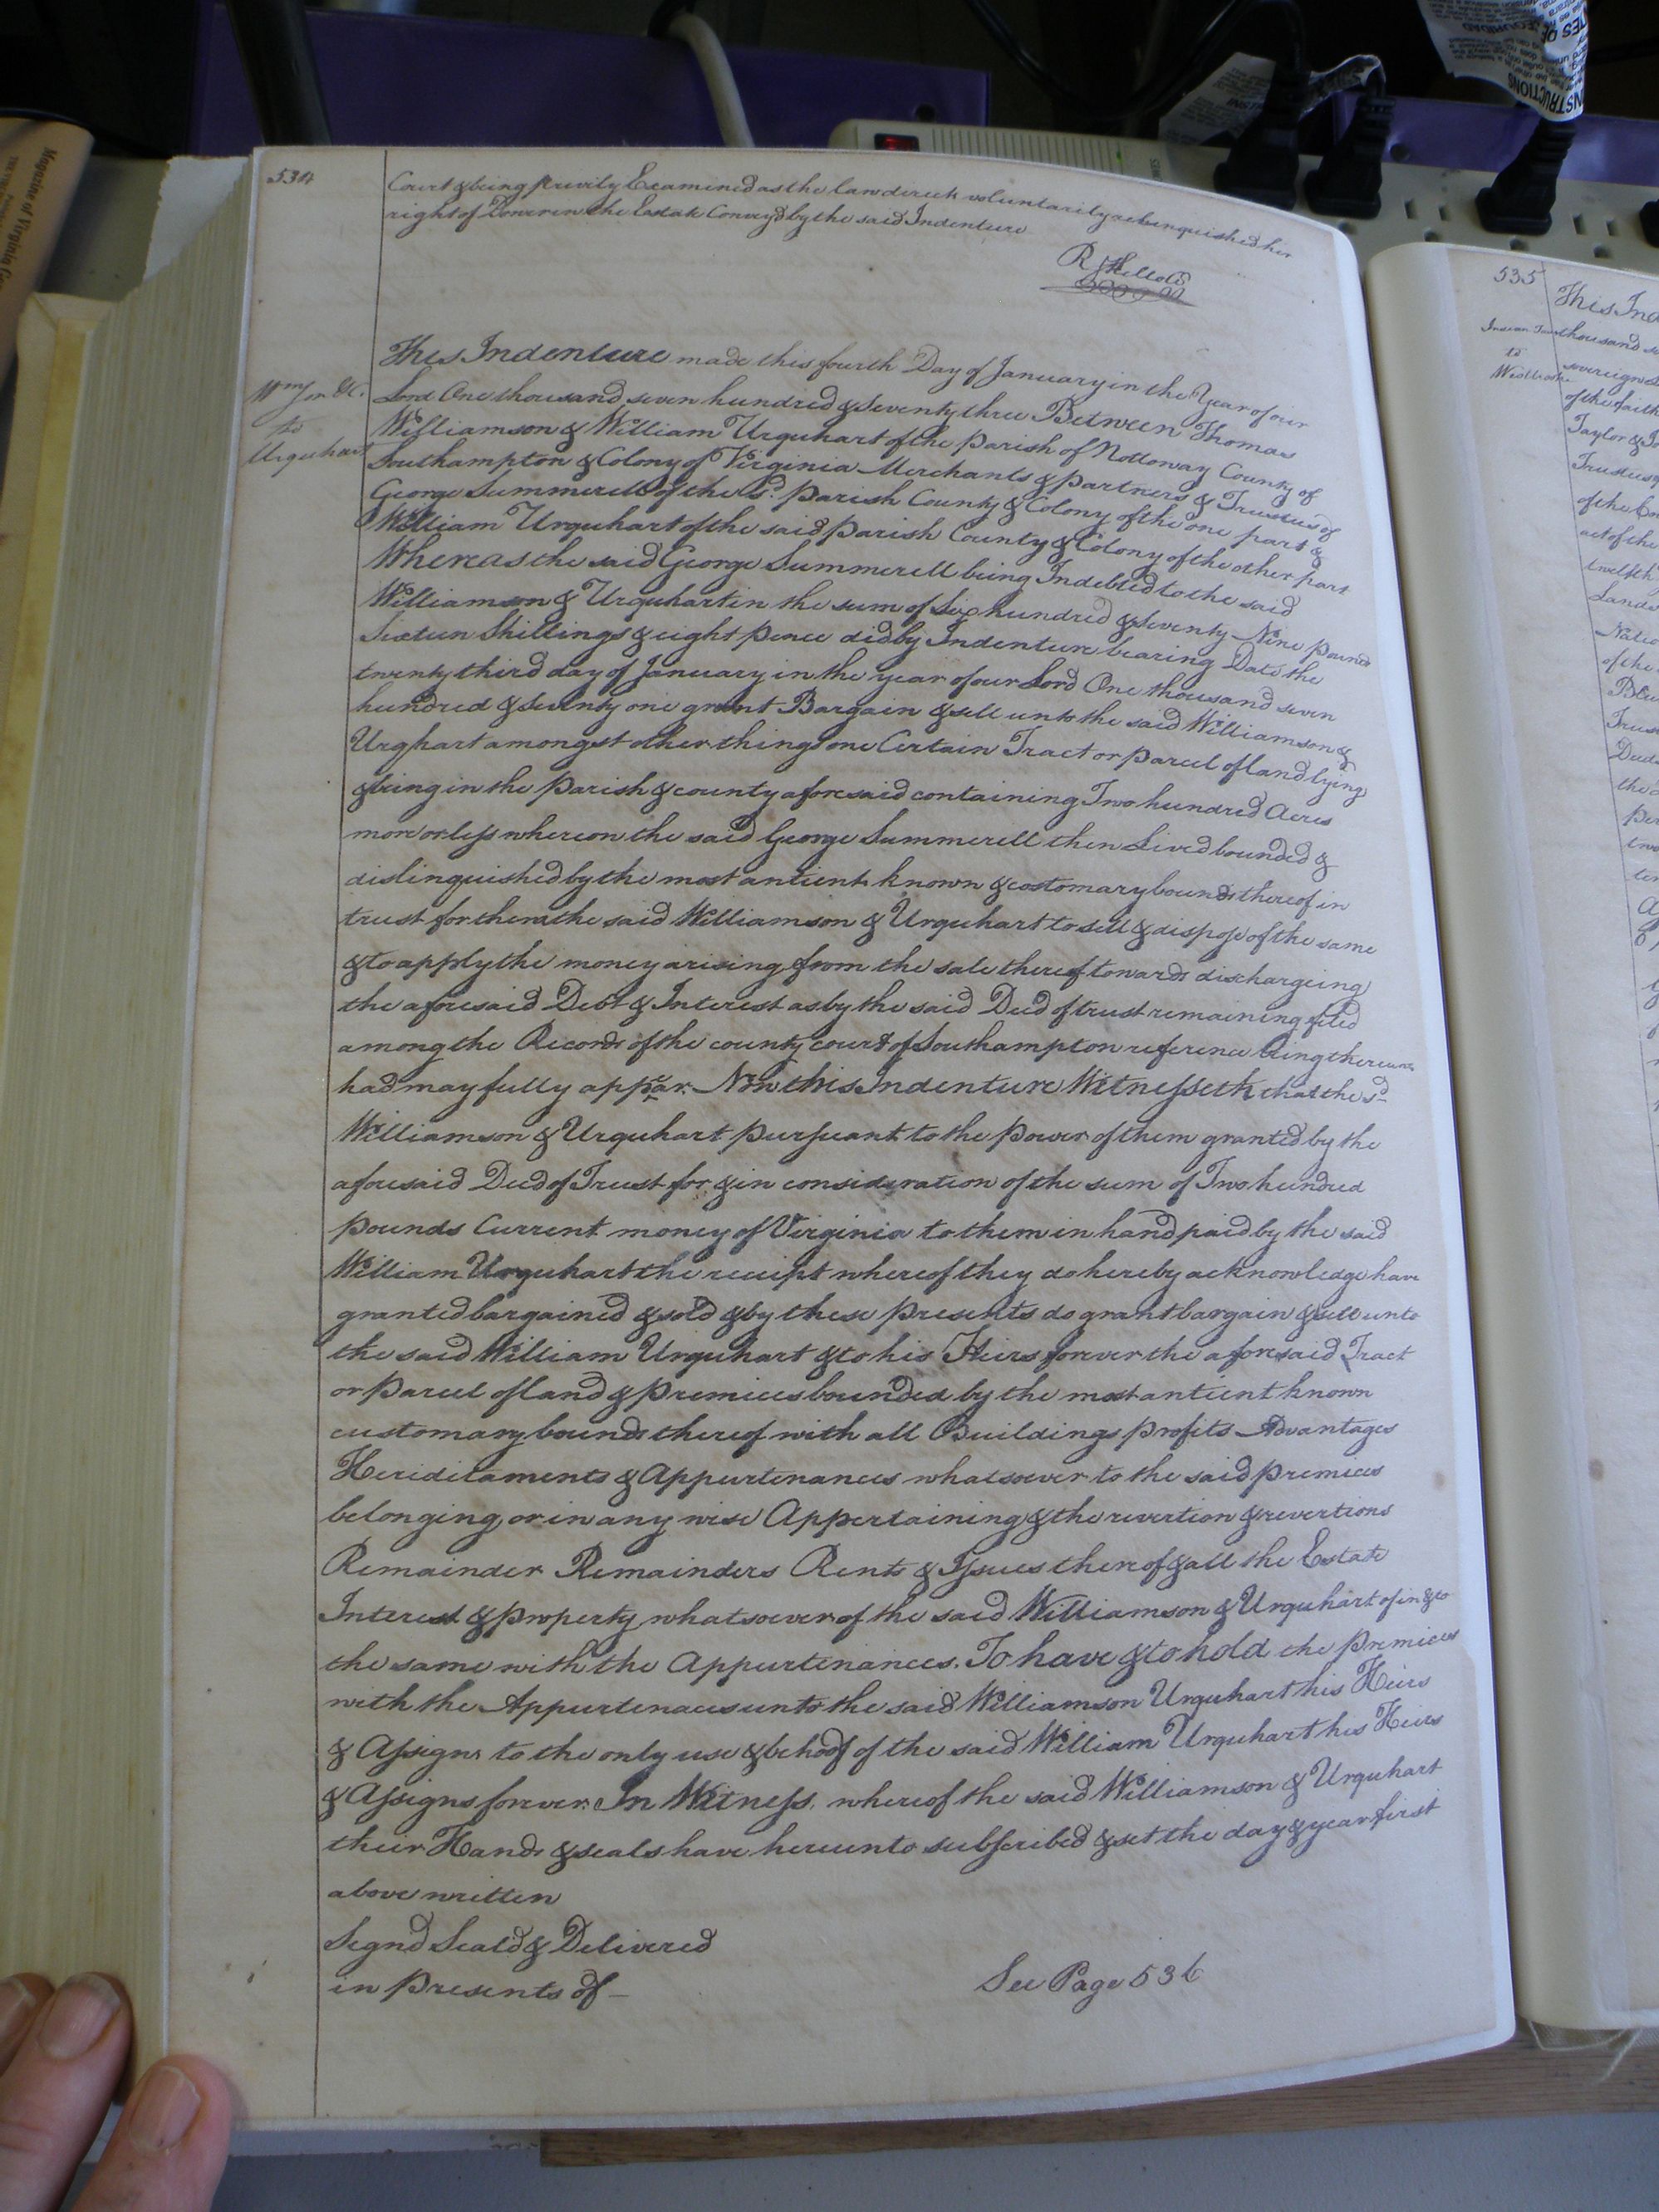 534
Court & being privily Examined as the law direck voluntarily relinquished her
right of Dower in the Estate Convey'd by the said Indenture
R Kello CC
This Indenture made this fourth Day of January in the Year of our
Wmson &C.
to
Urquhart
Lord One thousand seven hundred & Seventy three Between Thomas
Williamson & William Urquhart of the Parish of Nottoway County of
Southampton & Colony of Virginia Merchants & partners & Trustees of
George Summerell of the sd. parish County & Colony of the one part &
William Urquhart of the said parish County & Colony of the other part
Whereas the said George Summerell being Indebted to the said
Williamson & Urquhart in the sum of Six hundred & Seventy Nine pounds
Sixteen Shillings & eight pence did by Indenture bearing Date the
twenty third day of January in the year of our Lord One thousand seven
hundred & seventy one grant Bargain & sell unto the said Williamson &
Urqhart amongst other things one Certain Tract or parcel of land lying
& being in the Parish & county aforesaid containing Two hundred Acres
more or less whereon the said George Summerell then Lived bounded &
distinguished by the most antient known & costomary bounds thereof in
trust for them the said Williamson & Urquhart to sell & dispose of the same
& to apply the money arising from the sale thereof towards dischargeing
the aforesaid Debt & Interest as by the said Deed of trust remaining filed
among the Records of the county court of Southampton reference being thereunto
had may fully appear. Now this Indenture Witnesseth that the sd
Williamson & Urquhart pursuant to the power of them granted by the
aforesaid Deed of Trust for & in consideration of the sum of Two hundred
pounds Current money of Virginia to them in hand paid by the said
William Urquhart the receipt whereof they do hereby acknowledge have
granted bargained & sold & by these presents do grant bargain & sell unto
the said William Urquhart & to his Heirs forever the aforesaid Tract
or parcel of land & premices bounded by the most antient known
customary bounds thereof with all Buildings profits Advantages
Heriditaments & Appurtenances whatsoever to the said premices
belonging or in any wise Appertaining & the revertion & revertions
Remainder Remainders Rents & Issues thereof & all the Estate
Interest & property whatsoever of the said Williamson & Urquhart of in & to
the same with the Appurtenances. To have & to hold the premices
with the Appurtenaces unto the said Williamson Urquhart his Heirs
& Assigns to the only use & behoof of the said William Urquhart his Heirs
& Assigns forever. In Witness, whereof the said Williamson & Urquhart
their Hands & seals have hereunto subscribed & set the day & year first
above written
Signd Seald & Delivered
in presents of
See Page 536
535
This Ind
to
thousand
sovereign
of the faith
Taylor &
Trustees
of the
act of the
twelfth
Lands
Natio
of the
Trus
Deed
the
per
two
Magazine of Virginia
INSTRUCTIONS